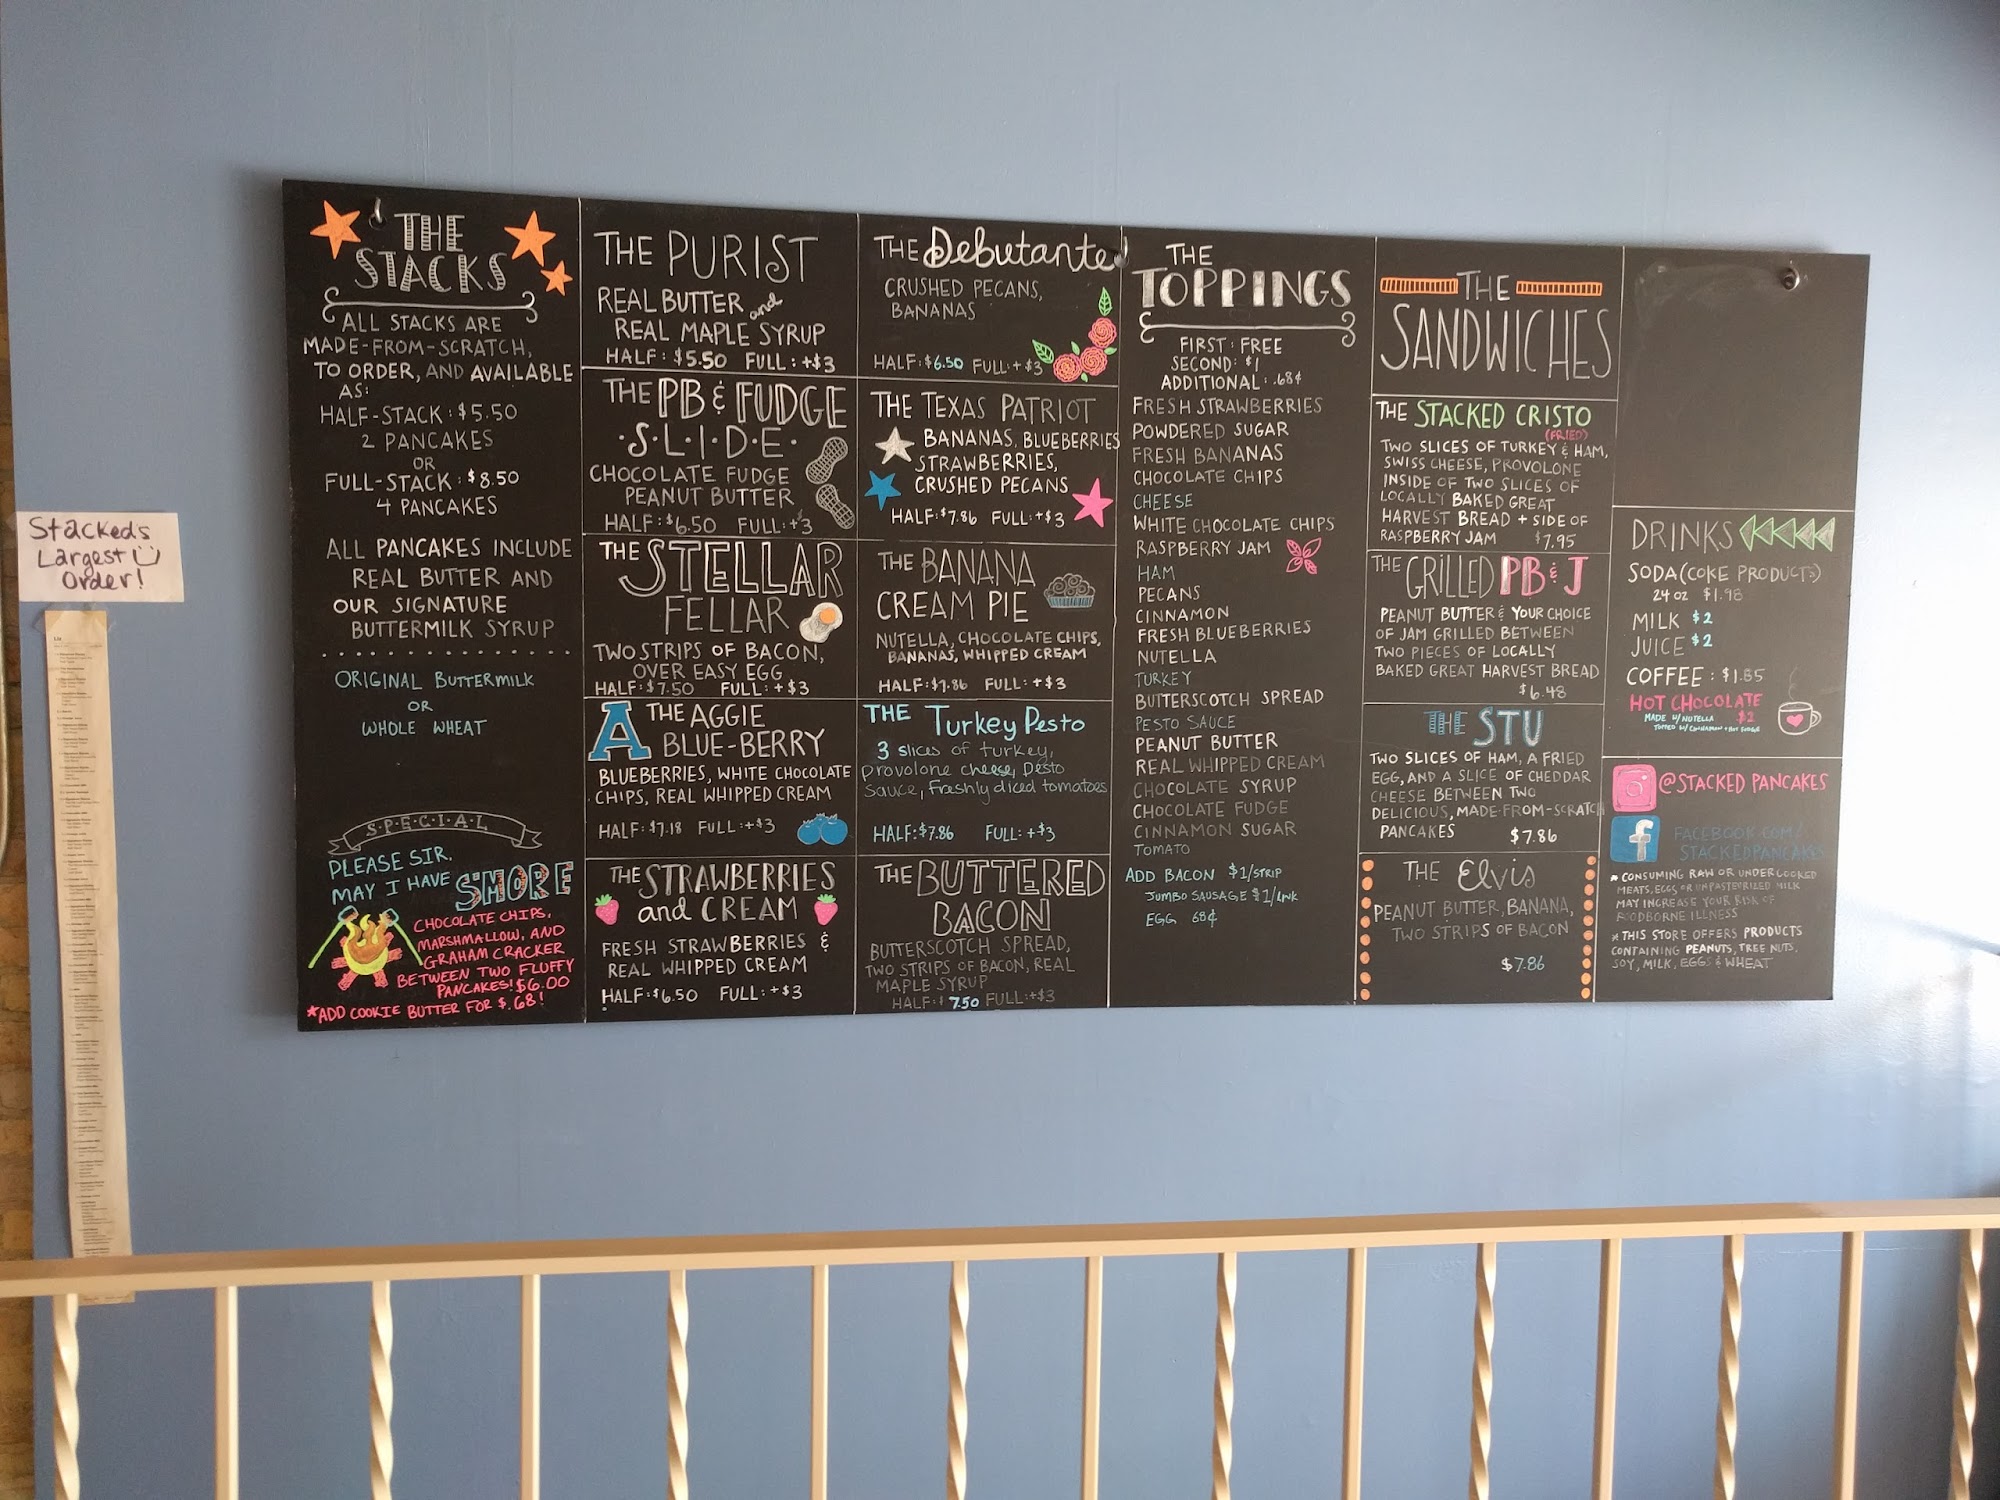 Stackeds
Largest
Order!
THE
STACKS
ALL STACKS ARE
MADE-FROM-SCRATCH,
TO ORDER, AND AVAILABLE
AS:
HALF-STACK: $5.50
2 PANCAKES
OR
FULL-STACK: $8.50
4 PANCAKES
ALL PANCAKES INCLUDE
REAL BUTTER AND
OUR SIGNATURE
BUTTERMILK SYRUP
ORIGINAL BUTTERMILK
OR
WHOLE WHEAT
S·P·E·C·I·A·L
PLEASE SIR,
MAY I HAVE S'MORE
CHOCOLATE CHIPS,
MARSHMALLOW, AND
GRAHAM CRACKER
BETWEEN TWO FLUFFY
PANCAKES! $6.00
*ADD COOKIE BUTTER FOR $.68!
THE PURIST
REAL BUTTER and
REAL MAPLE SYRUP
HALF: $5.50 FULL: +$3
THE PB & FUDGE
·S·L·I·D·E·
CHOCOLATE FUDGE
PEANUT BUTTER
HALF: $6.50 FULL: +$3
THE STELLAR
FELLAR
TWO STRIPS OF BACON,
OVER EASY EGG
HALF: $7.50 FULL: +$3
A THE AGGIE
BLUE-BERRY
BLUEBERRIES, WHITE CHOCOLATE
CHIPS, REAL WHIPPED CREAM
HALF: $7.18 FULL: +$3
THE STRAWBERRIES
and CREAM
FRESH STRAWBERRIES &
REAL WHIPPED CREAM
HALF: $6.50 FULL: +$3
THE Debutante
CRUSHED PECANS,
BANANAS
HALF: $6.50 FULL: +$3
THE TEXAS PATRIOT
BANANAS, BLUEBERRIES
STRAWBERRIES,
CRUSHED PECANS
HALF: $7.86 FULL: +$3
THE BANANA
CREAM PIE
NUTELLA, CHOCOLATE CHIPS,
BANANAS, WHIPPED CREAM
HALF: $7.86 FULL: +$3
THE Turkey Pesto
3 slices of turkey,
provolone cheese, pesto
sauce, freshly diced tomatoes
HALF: $7.86 FULL: +$3
THE BUTTERED
BACON
BUTTERSCOTCH SPREAD,
TWO STRIPS OF BACON, REAL
MAPLE SYRUP
HALF: $7.50 FULL: +$3
THE
TOPPINGS
FIRST: FREE
SECOND: $1
ADDITIONAL: .68¢
FRESH STRAWBERRIES
POWDERED SUGAR
FRESH BANANAS
CHOCOLATE CHIPS
CHEESE
WHITE CHOCOLATE CHIPS
RASPBERRY JAM
HAM
PECANS
CINNAMON
FRESH BLUEBERRIES
NUTELLA
TURKEY
BUTTERSCOTCH SPREAD
PESTO SAUCE
PEANUT BUTTER
REAL WHIPPED CREAM
CHOCOLATE SYRUP
CHOCOLATE FUDGE
CINNAMON SUGAR
TOMATO
ADD BACON $1/STRIP
JUMBO SAUSAGE $1/LINK
EGG 68¢
THE
SANDWICHES
THE STACKED CRISTO
(FRIED)
TWO SLICES OF TURKEY & HAM,
SWISS CHEESE, PROVOLONE
INSIDE OF TWO SLICES OF
LOCALLY BAKED GREAT
HARVEST BREAD + SIDE OF
RASPBERRY JAM $7.95
THE GRILLED PB & J
PEANUT BUTTER & YOUR CHOICE
OF JAM GRILLED BETWEEN
TWO PIECES OF LOCALLY
BAKED GREAT HARVEST BREAD
$6.48
THE STU
TWO SLICES OF HAM, A FRIED
EGG, AND A SLICE OF CHEDDAR
CHEESE BETWEEN TWO
DELICIOUS, MADE-FROM-SCRATCH
PANCAKES $7.86
THE Elvis
PEANUT BUTTER, BANANA,
TWO STRIPS OF BACON
$7.86
DRINKS
SODA (COKE PRODUCTS)
24 OZ $1.98
MILK $2
JUICE $2
COFFEE: $1.85
HOT CHOCOLATE
MADE W/ NUTELLA $2
TOPPED W/ CINNAMON + HOT FUDGE
@STACKED PANCAKES
f FACEBOOK.COM/
STACKEDPANCAKES
* CONSUMING RAW OR UNDERCOOKED
MEATS, EGGS OR UNPASTEURIZED MILK
MAY INCREASE YOUR RISK OF
FOODBORNE ILLNESS
* THIS STORE OFFERS PRODUCTS
CONTAINING PEANUTS, TREE NUTS,
SOY, MILK, EGGS & WHEAT